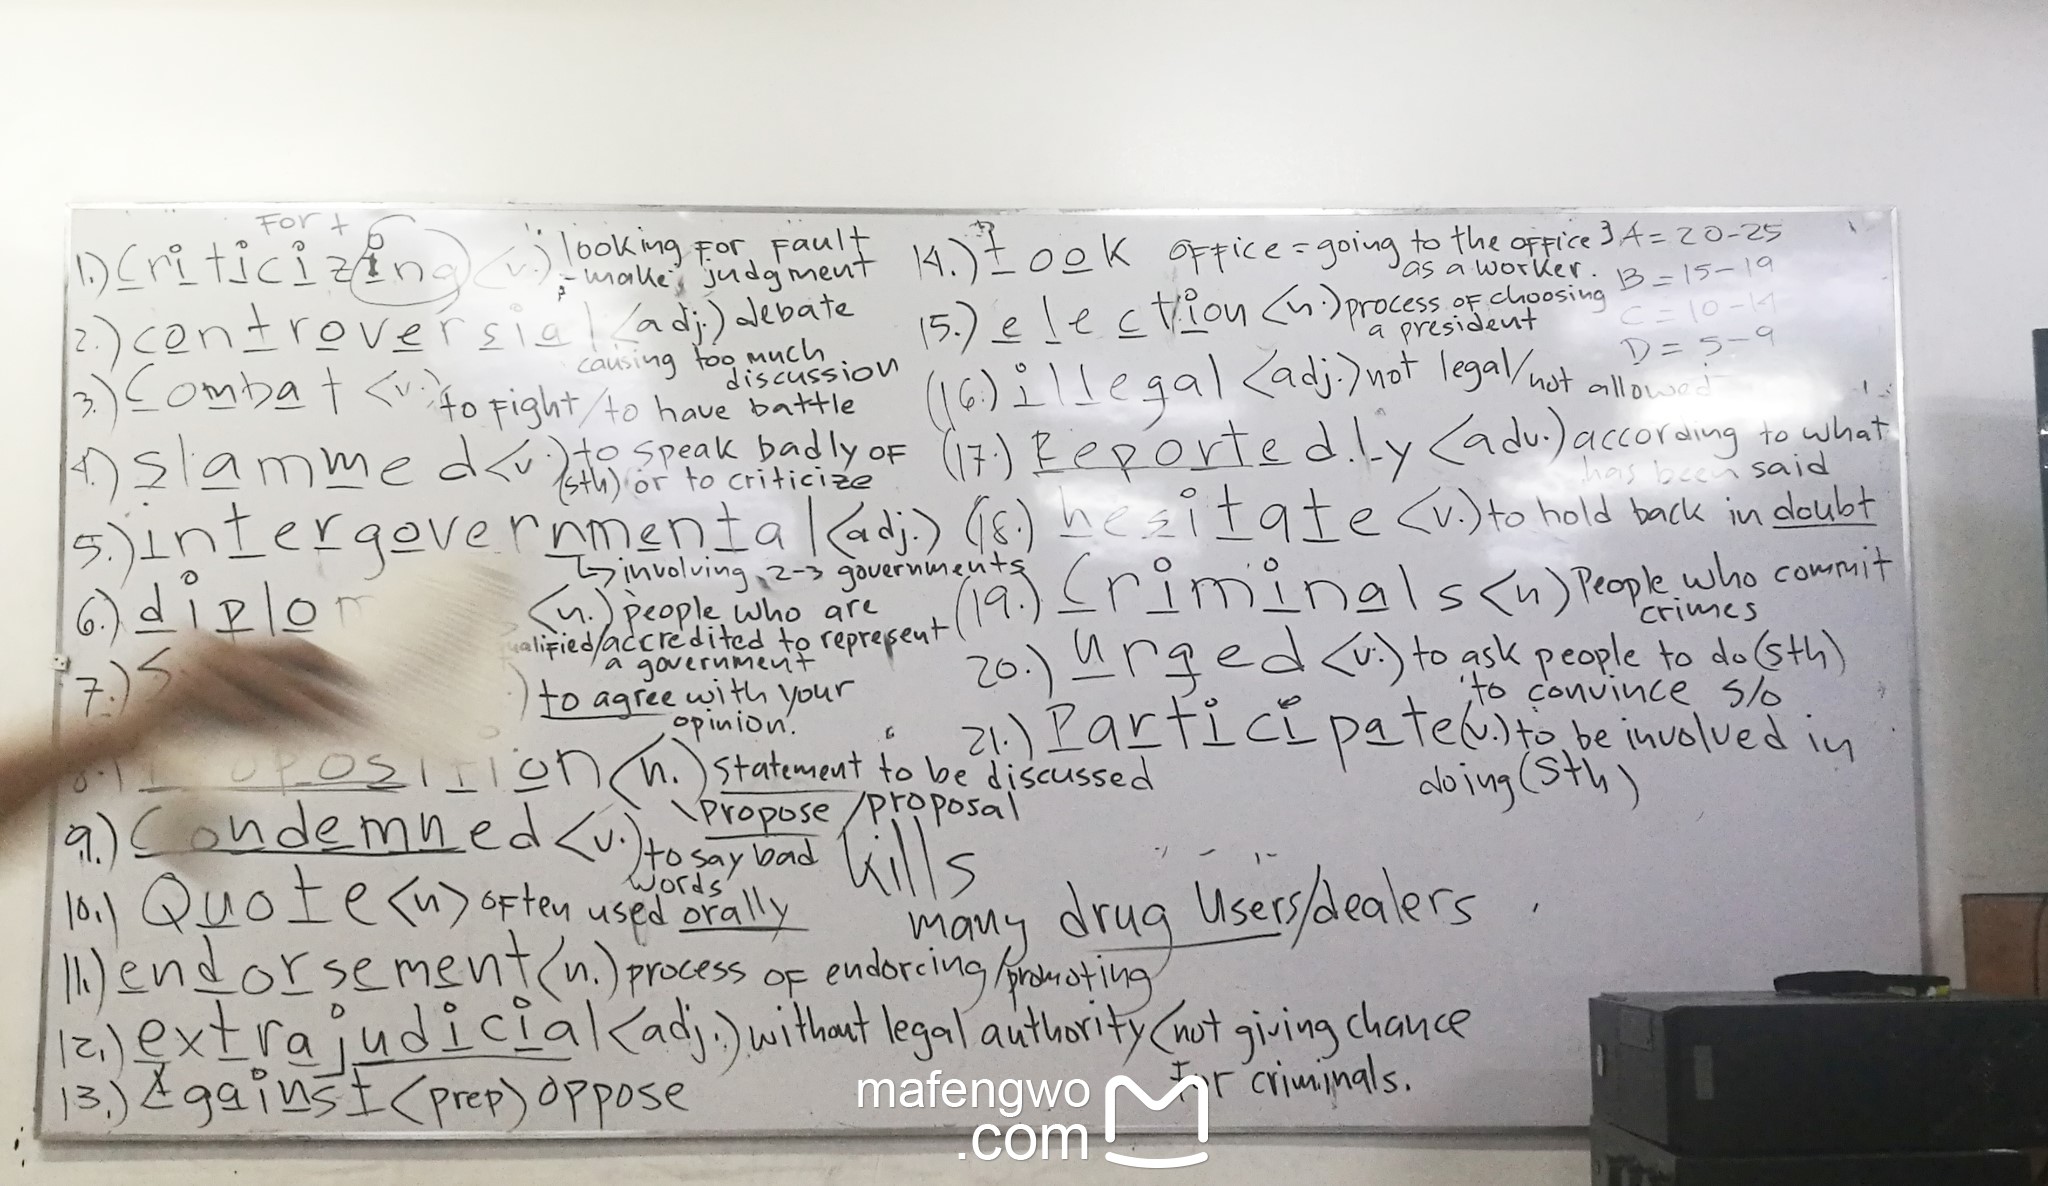 For t
1.) Criticizing <v.) looking for fault
- make judgment
2.) controversial <adj.) debate
causing too much
discussion
3.) Combat <v.) to fight/to have battle
4.) slammed <v.) to speak badly of
(sth) or to criticize
5.) intergovernmental <adj.)
↳ involving 2-3 governments
6.) diplom <n.) people who are
ualified/accredited to represent
a government
7.) S ) to agree with your
opinion.
oposition <n.) statement to be discussed
\propose /proposal
9.) Condemned <v.) to say bad
words
10.) Quote <n> often used orally
11.) endorsement <n.) process of endorcing/promoting
12.) extrajudicial <adj.) without legal authority (not giving chance
for criminals.
13.) Against <prep) oppose
14.) took office = going to the office
as a worker.
15.) election <n.) process of choosing
a president
(16.) illegal <adj.) not legal/not allowed
(17.) Reportedly <adv.) according to what
has been said
(18.) hesitate <v.) to hold back in doubt
(19.) Criminals <n) People who commit
crimes
20.) urged <v.) to ask people to do (sth)
to convince s/o
21.) Participate (v.) to be involved in
doing (sth)
A = 20-25
B = 15-19
C = 10-14
D = 5-9
kills
many drug users/dealers
mafengwo
.com